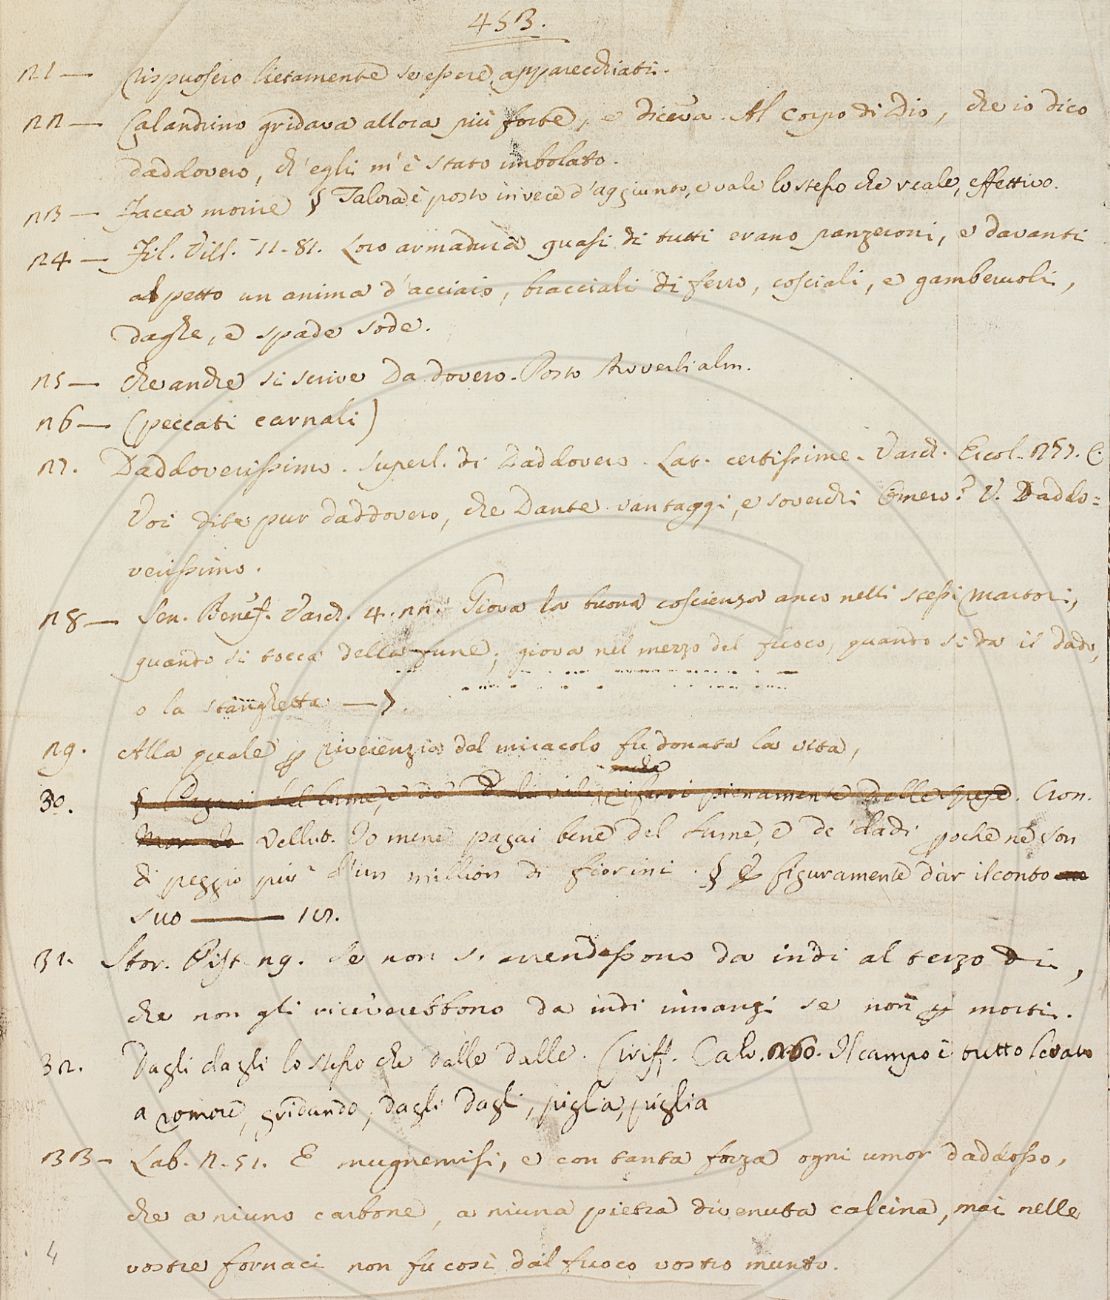 453.
21 — risposero lietamente se essere apparecchiati.
22 — Calandrino gridava allora più forte, e diceva. Al corpo di Dio, che io dico
daddovero, ch'egli m'è stato imbolato.
23 — Facea morire § Talora è posto invece d'aggiunto, e vale lo stesso che reale, effettivo.
24 — Fil. Vill. 11. 81. Loro armadura quasi di tutti erano panzeroni, e davanti
al petto un anima d'acciaio, bracciali di ferro, cosciali, e gamberuoli,
daghe, e spade sode.
25 — che anche si scrive Da dovero. Posto Avverbialm.
26 — (peccati carnali)
27. Daddoverissimo. Superl. di Daddovero. Lat. certissime. Varch. Ercol. 257. C.
Voi dite pur daddovero, che Dante vantaggi, e soverchi Omero? V. Daddo=
verissimo.
28 — Sen. Benef. Varch. 4. 22. Giova la buona coscienza anco nelli stessi martori,
quando si tocca della fune, giova nel mezzo del fuoco, quando si da il dado,
o la stanghetta —
29. Alla quale p riverenzia del miracolo fu donata la vita,
30. § Pagarsi del lume, e de' Dadi vale rifarsi pienamente delle spese. Cron.
Vellut. Io mene pagai bene del lume, e de' dadi poche ne son
di peggio più d'un million di fiorini. § E figuramente dar il conto
suo — 12.
31. Stor. Pist. 29. Se non si arrendessono da indi al terzo di,
che non gli riceverebbono da indi innanzi se non p morti.
32. Dagli dagli lo stesso che dalle dalle. Ciriff. Calv. 260. Il campo è tutto levato
a romore, gridando, dagli dagli, piglia, piglia
33 — Lab. 2. 51. E mugnemisi, e con tanta forza ogni umor daddosso,
che a niuno carbone, a niuna pietra divenuta calcina, mai nelle
vostre fornaci non fu così dal fuoco vostro munto.
4